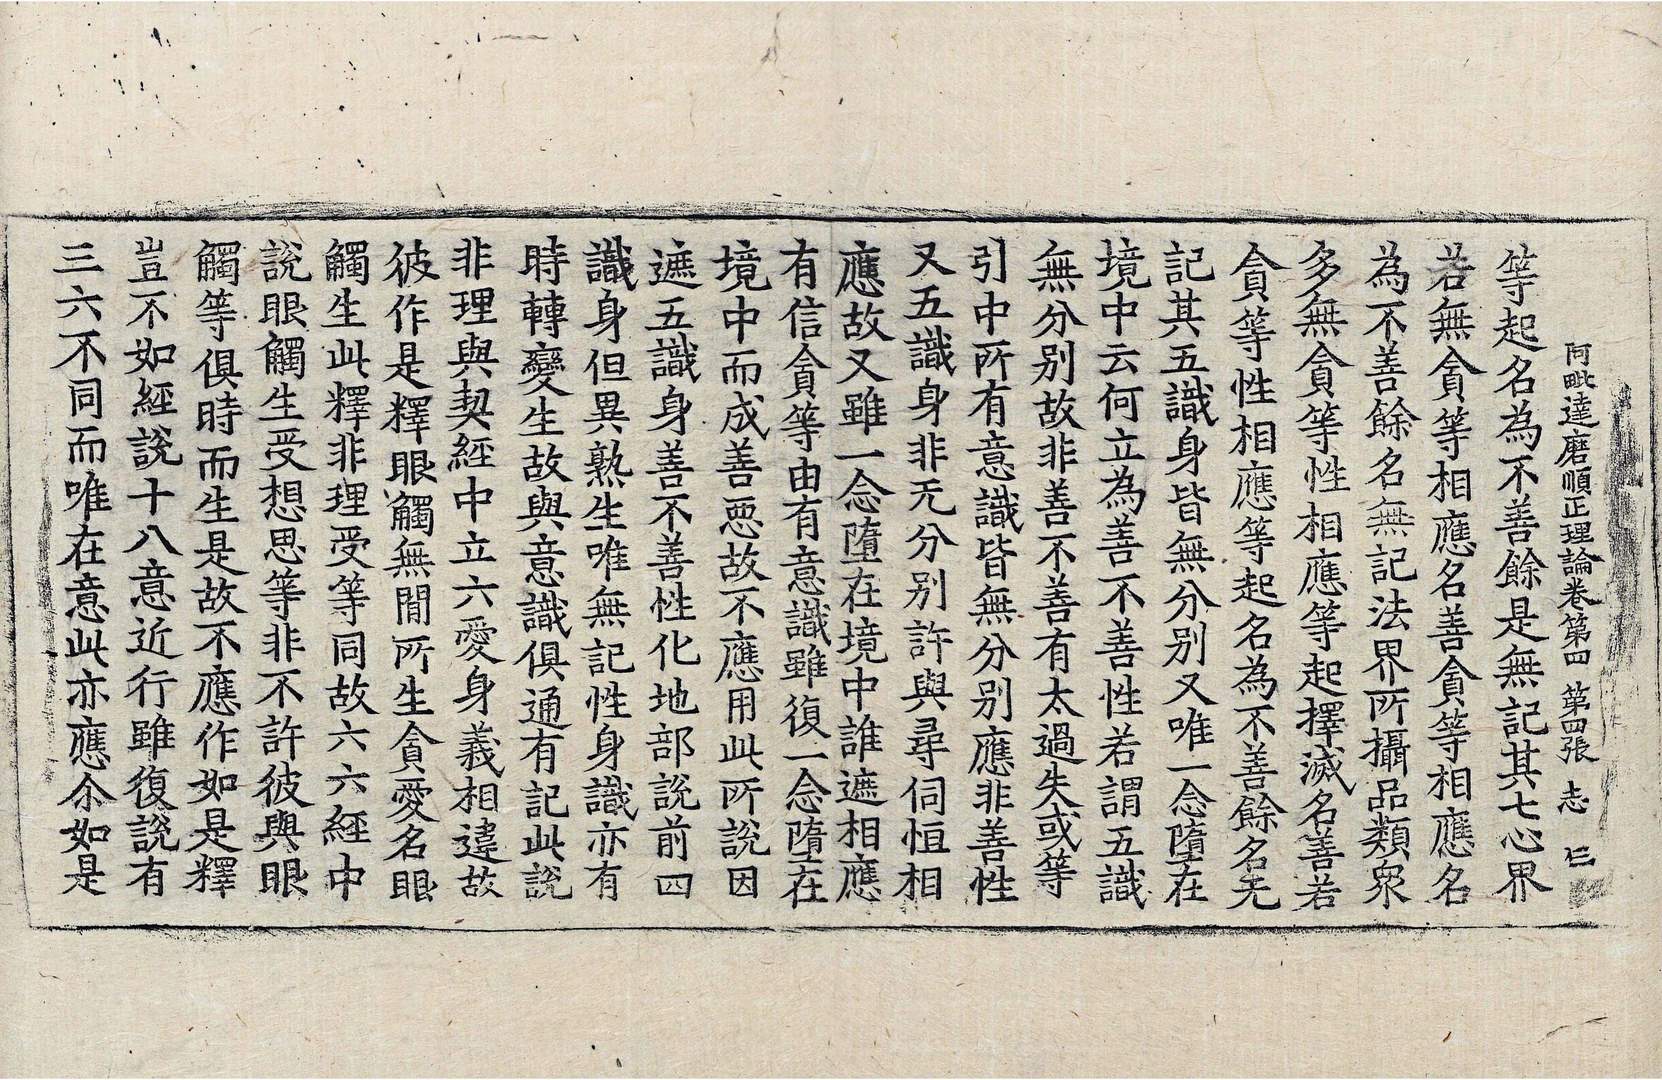 阿毗達磨順正理論卷第四 第四張 志
等起名為不善餘是無記其七心界
若無貪等相應名善貪等相應名
為不善餘名無記法界所攝品類衆
多無貪等性相應等起擇滅名善若
貪等性相應等起名為不善餘名无
記其五識身皆無分别又唯一念墮在
境中云何立為善不善性若謂五識
無分别故非善不善有太過失或等
引中所有意識皆無分别應非善性
又五識身非无分别許與尋伺恒相
應故又雖一念墮在境中誰遮相應
有信貪等由有意識雖復一念墮在
境中而成善惡故不應用此所說因
遮五識身善不善性化地部說前四
識身但異熟生唯無記性身識亦有
時轉變生故與意識俱通有記此說
非理與契經中立六愛身義相違故
彼作是釋眼觸無間所生貪愛名眼
觸生此釋非理受等同故六六經中
說眼觸生受想思等非不許彼與眼
觸等俱時而生是故不應作如是釋
豈不如經說十八意近行雖復說有
三六不同而唯在意此亦應尒如是